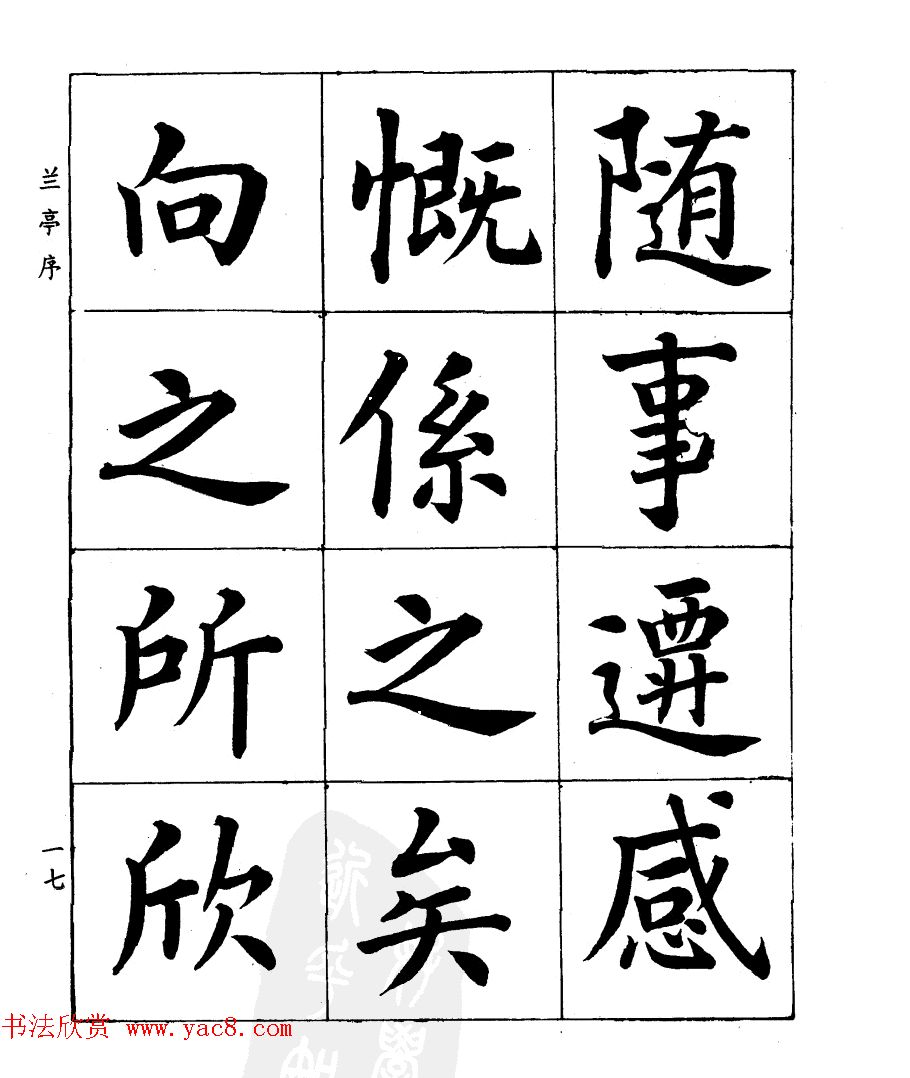 随事遷感
慨係之矣
向之所欣
兰亭序
一七
书法欣赏 www.yac8.com